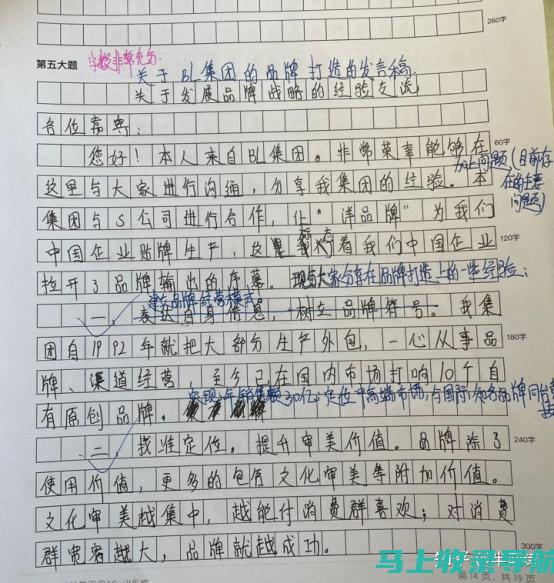 260字
第五大题
字数非常充分
关于BL集团的品牌打造的发言稿
关于发展品牌战略的经验交流
各位嘉宾:
您好!本人来自BL集团。非常荣幸能够在
60字
加上问题(目前存在的主要问题)
这里与大家进行沟通,分享我集团的经验。本
集团与S公司进行合作,让“洋品牌”为我们
中国企业贴牌生产,这标志着我们中国企业
120字
拉开了品牌输出的序幕。现与大家分享在品牌打造上的一些经验:
建立品牌经营模式。
一,表达自身信息,树立品牌符号。我集
团自1992年就把大部分生产外包,一心从事品
180字
牌、渠道经营,至今已在国内市场打响10个自
有原创品牌。
实现年销售额30亿;定位中高端市场,与国际知名品牌同台竞技
二,找准定位。提升审美价值。品牌除了
240字
使用价值,更多的包含文化审美等附加价值。
文化审美越集中,越能付消费群喜欢;对消费
群宽容越大,品牌就越成功。
300字
马上收录导航
第14页,共19页